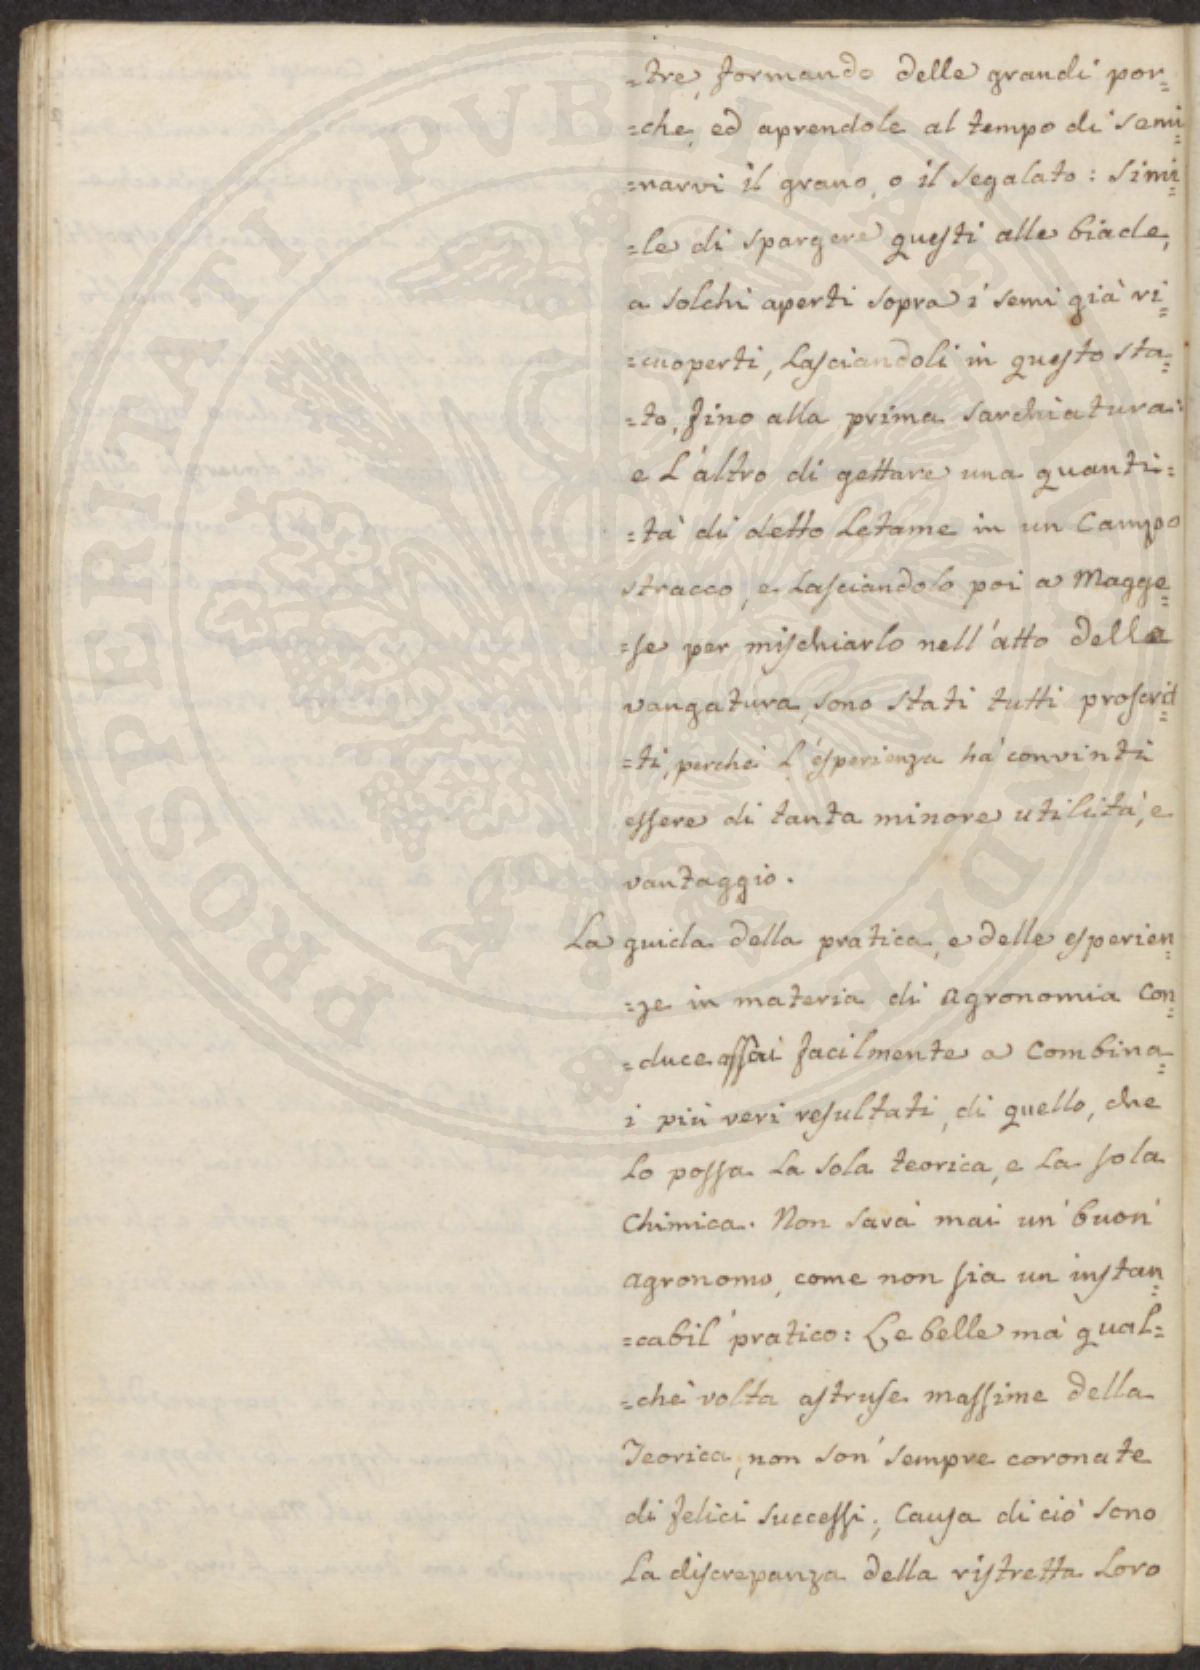 =tre, formando delle grandi por=
=che, ed aprendole al tempo di semi=
=narvi il grano, o il segalato: simi=
=le di spargere questi alle biade,
a solchi aperti sopra i semi già ri=
=cuoperti, Lasciandoli in questo sta=
=to, fino alla prima sarchiatura:
e L'altro di gettare una quanti=
=tà di detto Letame in un Campo
stracco, e Lasciandolo poi a Magge=
=se per mischiarlo nell'atto della
vangatura, sono stati tutti proscrit=
=ti, perchè L'esperienza hà convinti
essere di tanta minore utilità, e
vantaggio.
La guida della pratica, e delle esperien=
=ze in materia di Agronomia Con=
=duce assai facilmente a Combina=
i più veri resultati, di quello, che
Lo possa La sola teorica, e La sola
Chimica. Non sarà mai un' buon'
Agronomo, come non sia un instan=
=cabil' pratico: Le belle mà qual=
=chè volta astruse massime della
Teorica, non son' sempre coronate
di felici successi; Causa di ciò sono
La discrepanza della ristretta Loro
PROSPERITATI PVBLICAE AVGENDAE